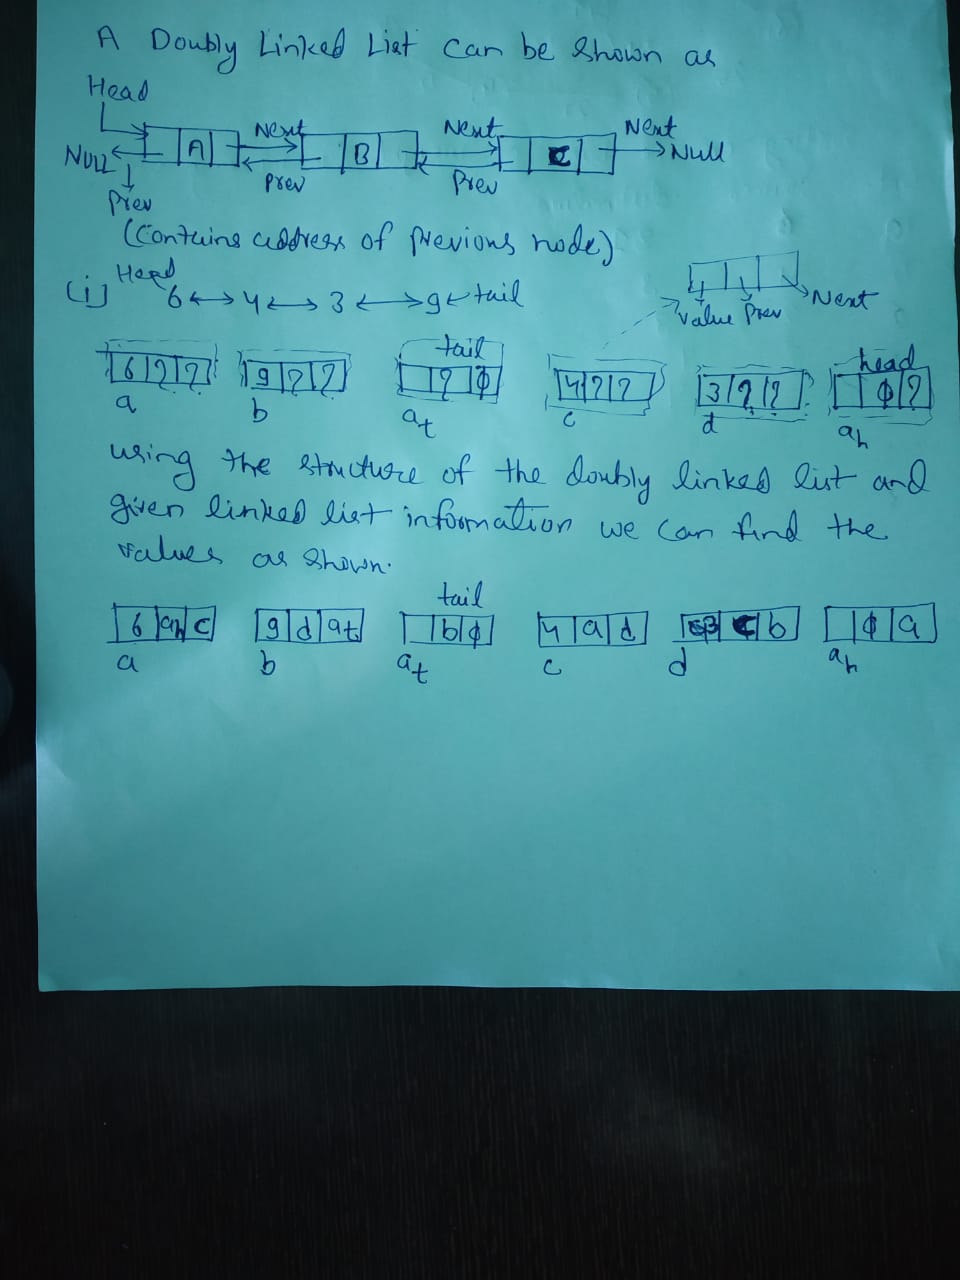 A Doubly Linked List can be shown as
Head
Next Next Next
NULL A B C Null
Prev Prev Prev
(Contains address of previous node)
(i) Head
6 ↔ 4 ↔ 3 ↔ 9 ← tail
Value Prev Next
tail head
6 ? ? 9 ? ? ? φ 4 ? ? 3 ? ? φ ?
a b at c d ah
using the structure of the doubly linked list and
given linked list information we can find the
values as shown.
tail
6 ah c 9 d at b φ 4 a d 3 c b φ a
a b at c d ah